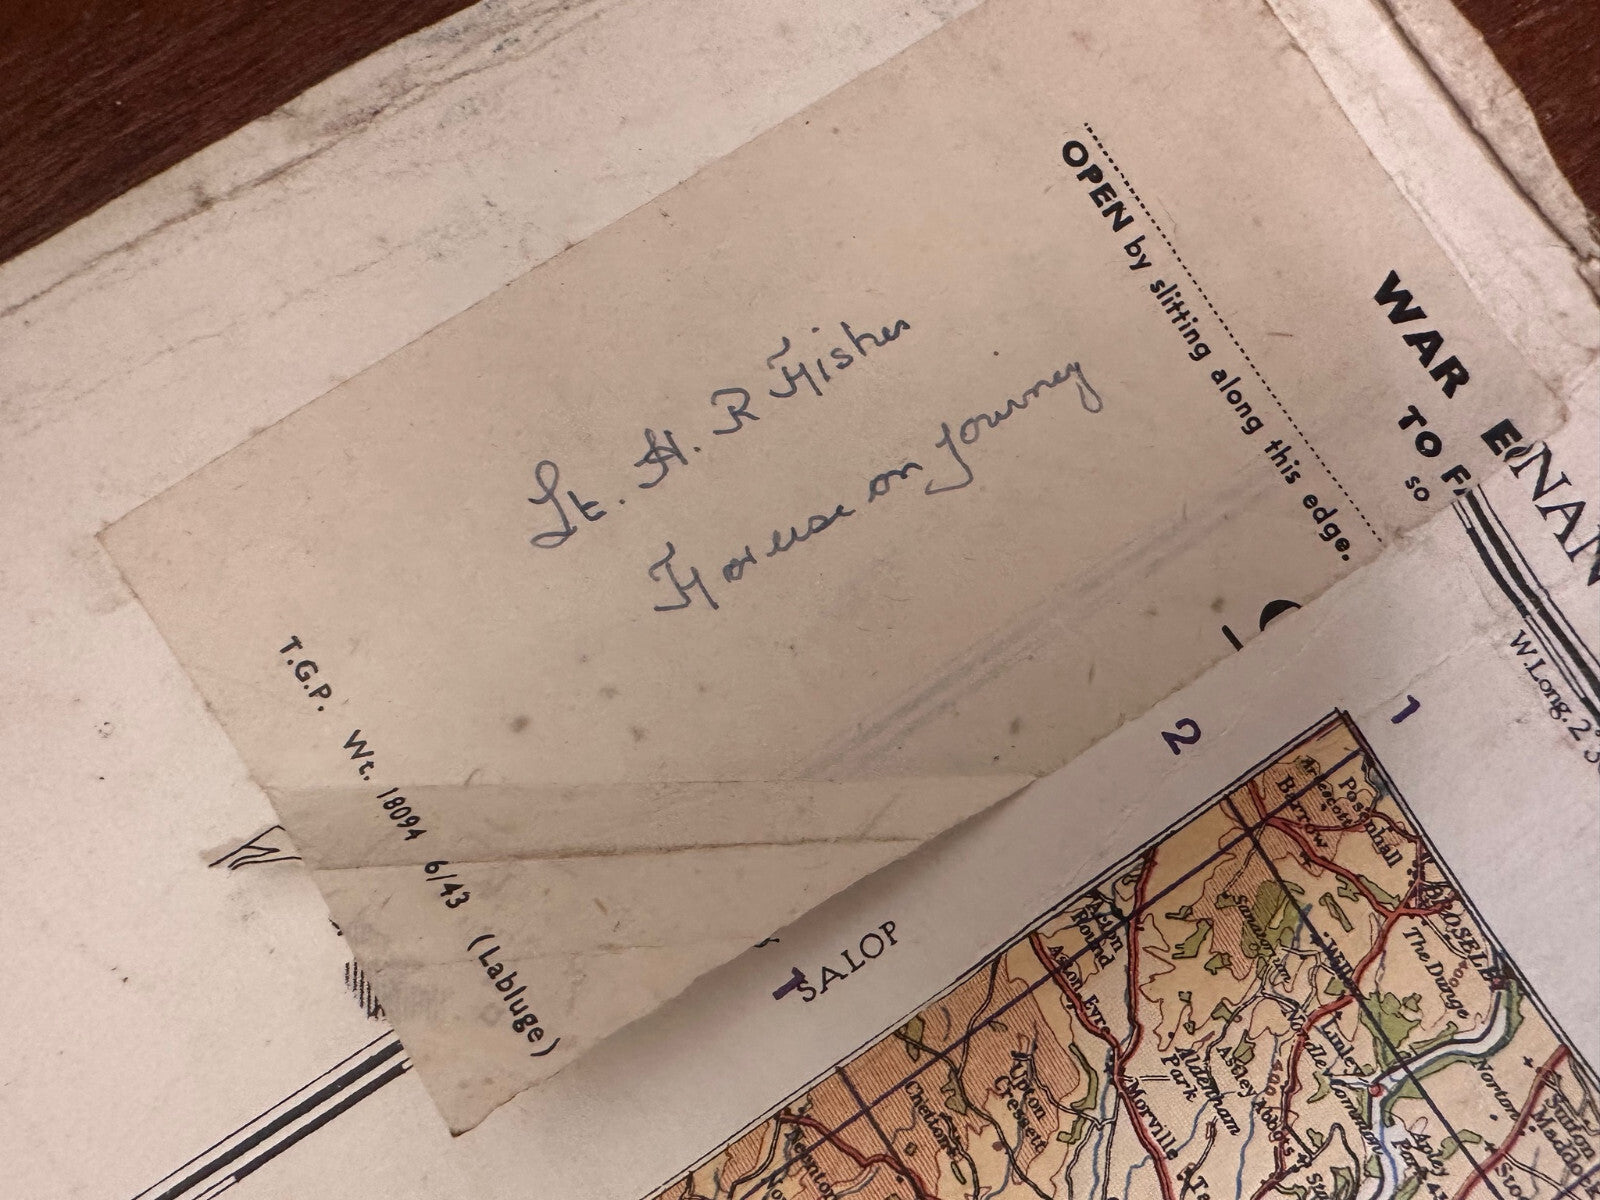 Lt. H. R Fisher
For use on Journey
OPEN by slitting along this edge.
WAR
TO
so
T.G.P. Wt. 18094 6/43 (Labluge)
W.Long. 2
1
2
1
SALOP
Posenhall
Barrow
BROSELEY
The Dunge
Willey
Acton
Round
Aston Eyre
Linley
Nordley Common
Norton
Aldenham
Park
Astley Abbots
Upton
Cressett
Chetton
Morville
Neenton
Apley
Park
Sutton
Maddock